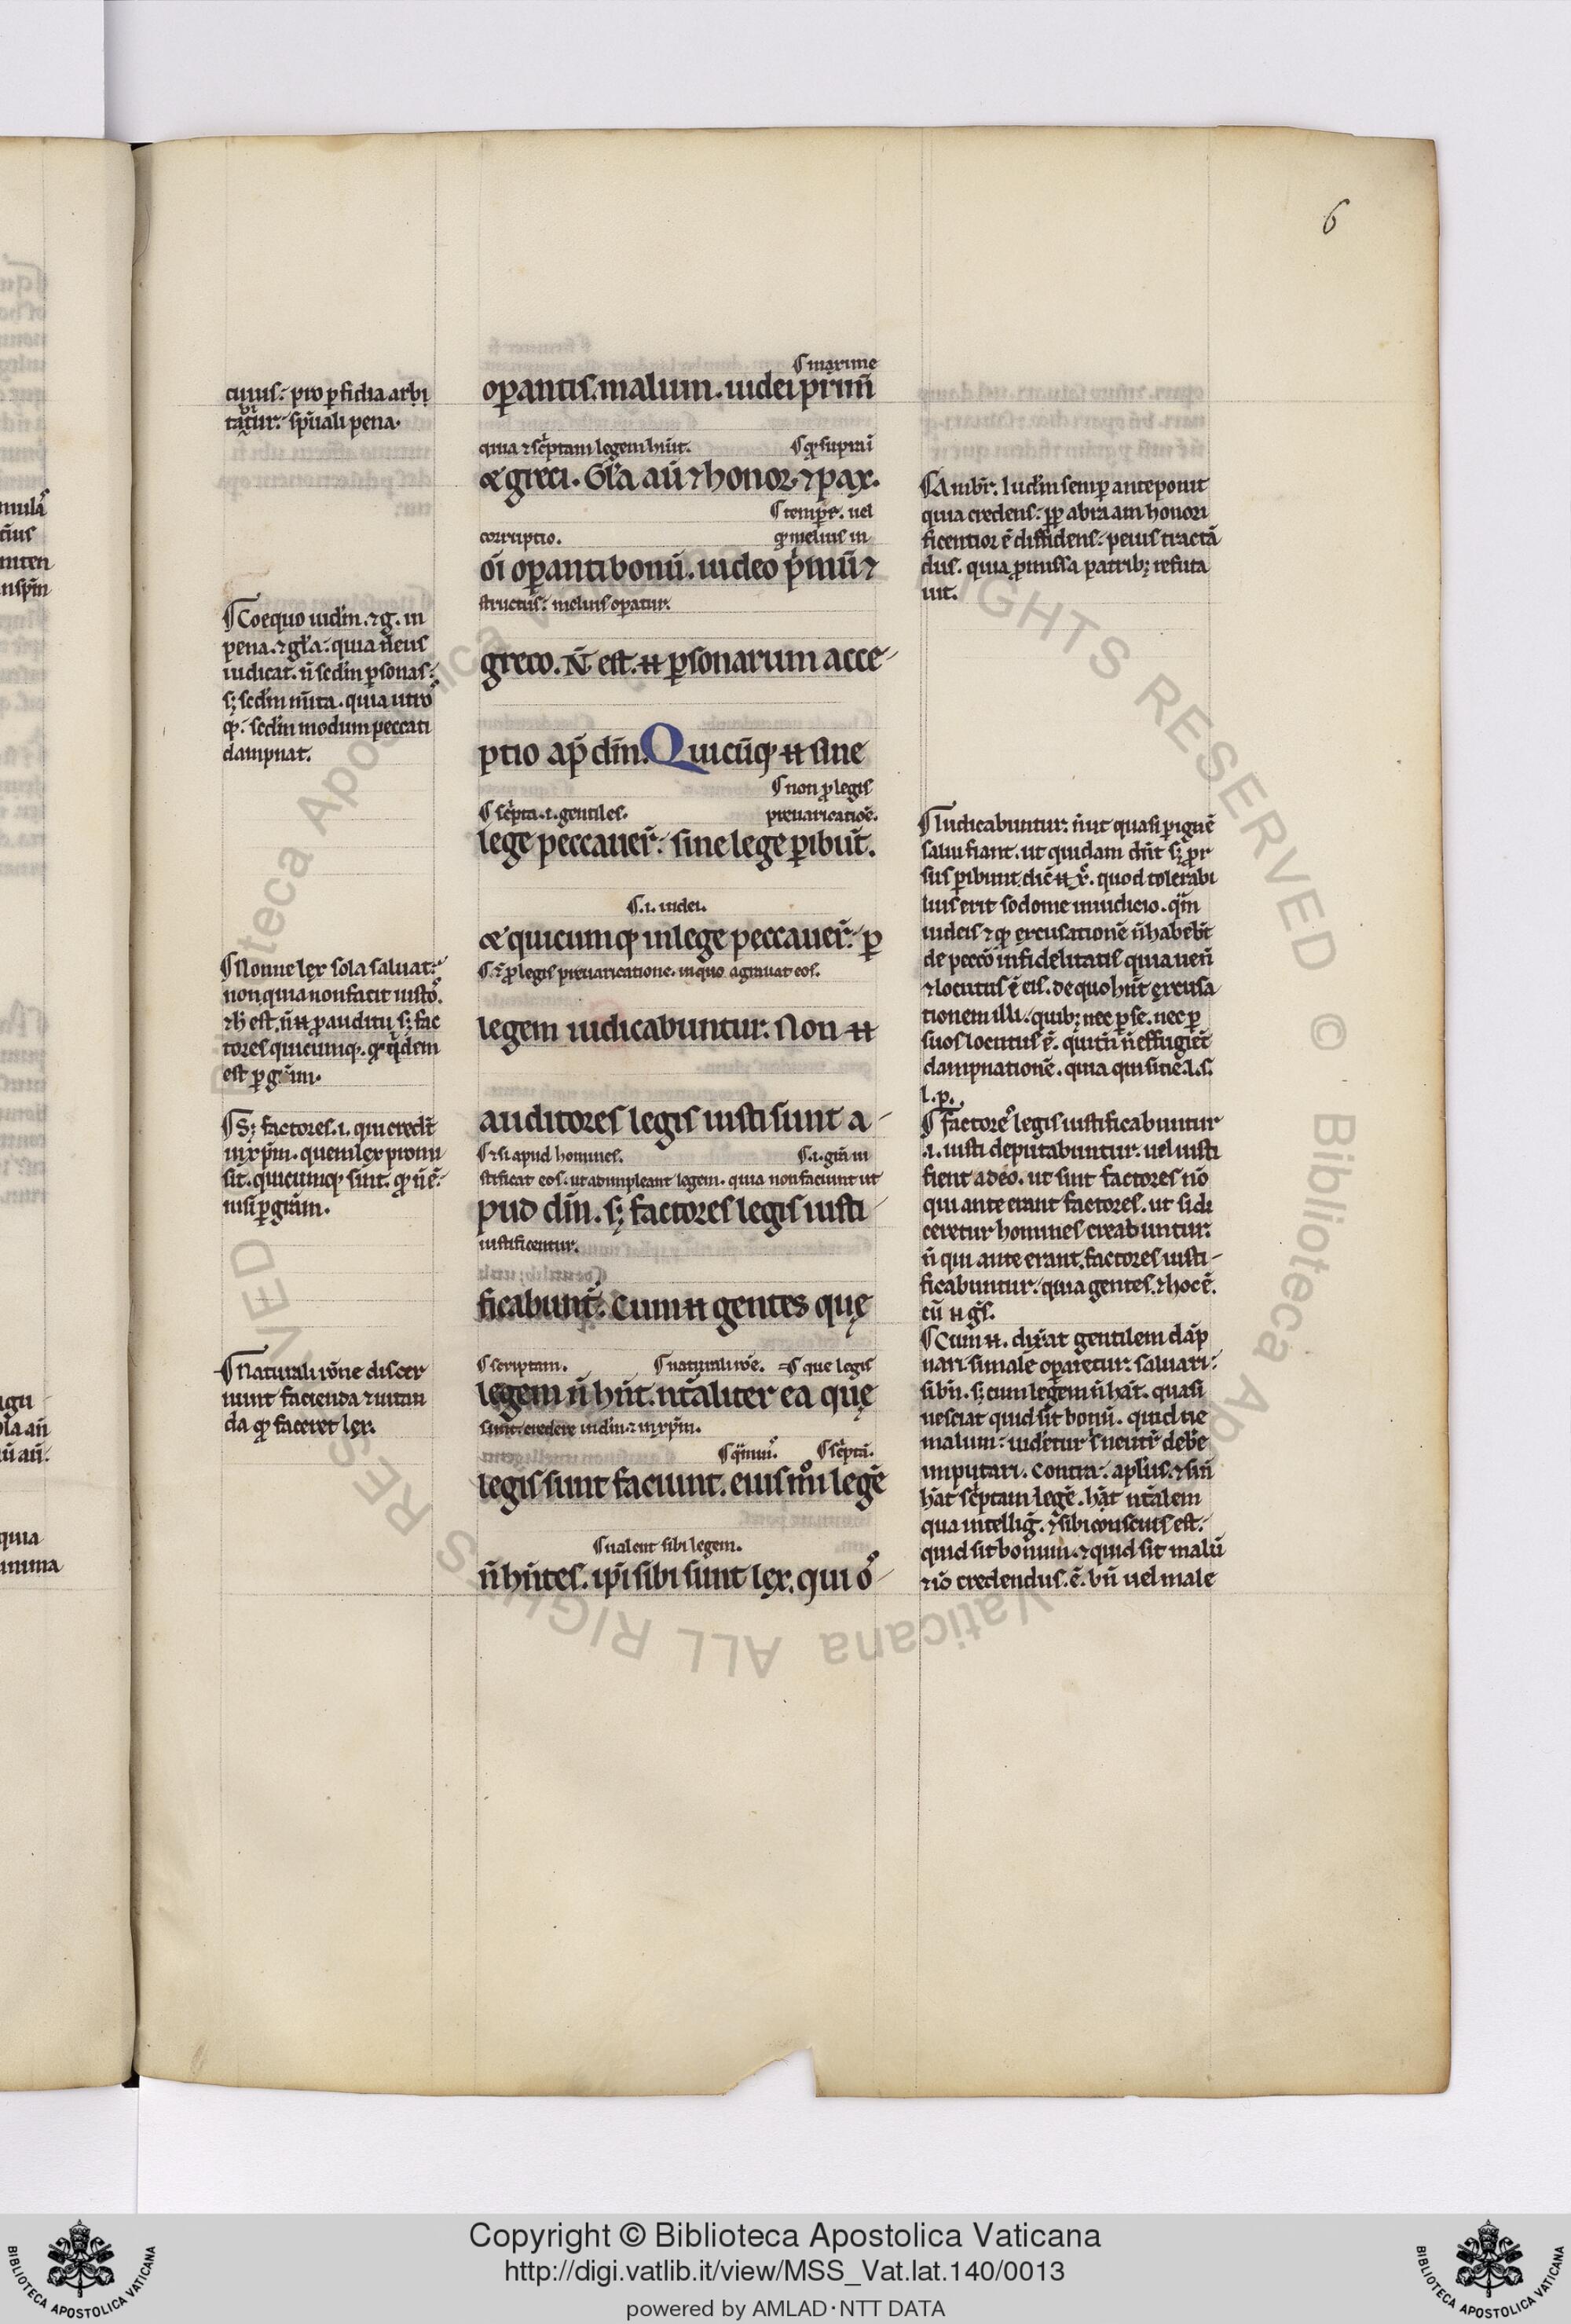 6
cuius: pro ꝑfidia arbi
tratur: sp̄uali pena.
¶Coequo iudm̄. ⁊g. in
pena. ⁊gl̄a: quia n̄eus
iudicat. n̄ sedm̄ ꝑsonas:
sꝫ sedm̄ mīta. quia utro
qꝫ. sedm̄ modum peccati
dampnat.
¶Nonne lex sola saluat:
non quia non facit iustos.
⁊h̄ est. n̄ ꝓ auditu sꝫ fac
tores quicumqꝫ. qđ qidem
est ꝑ gr̄am.
¶Sꝫ factores .i. qui credūt
in xp̄m. quem lex promi
sit. quicumqꝫ sint. qđ n̄ ē:
nisi ꝑ gratiam.
¶Naturali rōne discer
nunt facienda ⁊uitan
da qđ faceret lex.
¶maxime
oꝑantis. malum. iudei primū
quia ⁊scͥptam legem hn̄t.
⁊ greci. Gl̄a aū ⁊honor ⁊pax.
corruptio.
oī oꝑanti bonū. iudeo p̄mū ⁊
structus: melius oꝑatur.
greco. N̄ est. ꝑsonarum acce-
ptio ap̄ dm̄. Quicūqꝫ sine
¶non ꝓ legis
¶scͥpta .i. gentiles. preuaricatiōe.
lege peccauer̄: sine lege ꝑibūt.
¶.i. iudei.
⁊ quicumqꝫ in lege peccauer̄: ꝑ
legis preuaricatione. in quo agrauat eos.
legem iudicabuntur. Non
auditores legis iusti sunt a-
¶⁊si apud homines. ¶.i. gr̄a iu
stificat eos. ut adimpleant legem. quia non faciunt ut
pud dm̄. sꝫ factores legis iusti-
iustificentur.
ficabunt᷑: Cum gentes quę
¶scriptam. ¶naturali rōe. ¶que legis
legem n̄ hn̄t. nt̄aliter ea quę
sunt: credere in dm̄ ⁊ in xp̄m.
¶scͥptā.
legis sunt faciunt. eiusmͦi legē
¶ualent sibi legem.
n̄ hn̄tes. ip̄i sibi sunt lex. qui oͦ-
¶Ambr̄. Iudm̄ semꝑ anteponit
quia credens: ꝓp abraam honori
ficentior ē diffidens: peius tractā
dus. quia ꝓmissa patribꝫ refuta
uit.
¶Iudicabuntur: n̄ ut quasi ꝑ ignē
salui fiant. ut quidam dn̄t sꝫ pror
sus ꝑibunt. quod tolerabi
lius erit sodome in iudicio. qm̄
iudeis ⁊ qđ excusationē n̄ habebūt
de peccō infidelitatis quia ueni
⁊locutus ē eis. de quo hn̄t excusa
tionem illi. quibꝫ nec ꝑ se. nec ꝑ
suos locutus ē. qui tn̄ n̄ effugiēt
dampnationē.
l. p.
¶Factores legis iustificabuntur
.i. iusti deputabuntur: uel iusti
fient a deo. ut sint factores nō
qui ante erant factores. ut si di
ceretur homines creabuntur.
n̄ qui ante erant. factores iusti-
ficabuntur: quia gentes. ⁊ hoc ē.
¶Cum. dixat gentilem dāp
nari si male oꝑaretur: saluari:
si bn̄. sꝫ cum legem n̄ hāt. quasi
nesciat quid sit bonū. quid ue
malum: uidetur sͥ neutrū debere
imputari. Contra: apl̄us. ⁊si n̄
hāt scͥptam legē. hāt nt̄alem
qua intelligͥ. ⁊sibi conscius est:
quid sit bonum. ⁊quid sit malū
⁊iō credendus. ē. bn̄ uel male
Copyright © Biblioteca Apostolica Vaticana
http://digi.vatlib.it/view/MSS_Vat.lat.140/0013
powered by AMLAD·NTT DATA